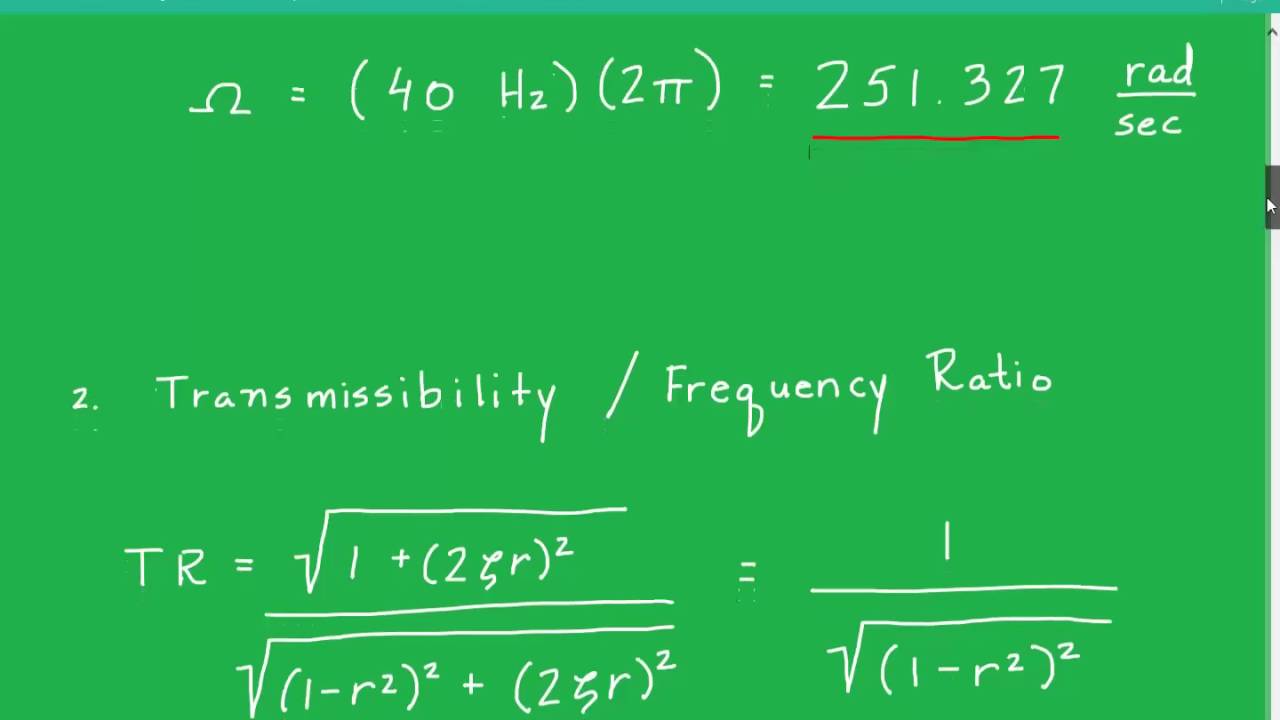 Ω = (40 Hz)(2π) = 251.327 rad/sec
2. Transmissibility / Frequency Ratio
TR = √(1 + (2ζr)²) / √((1-r²)² + (2ζr)²) = 1 / √((1-r²)²)